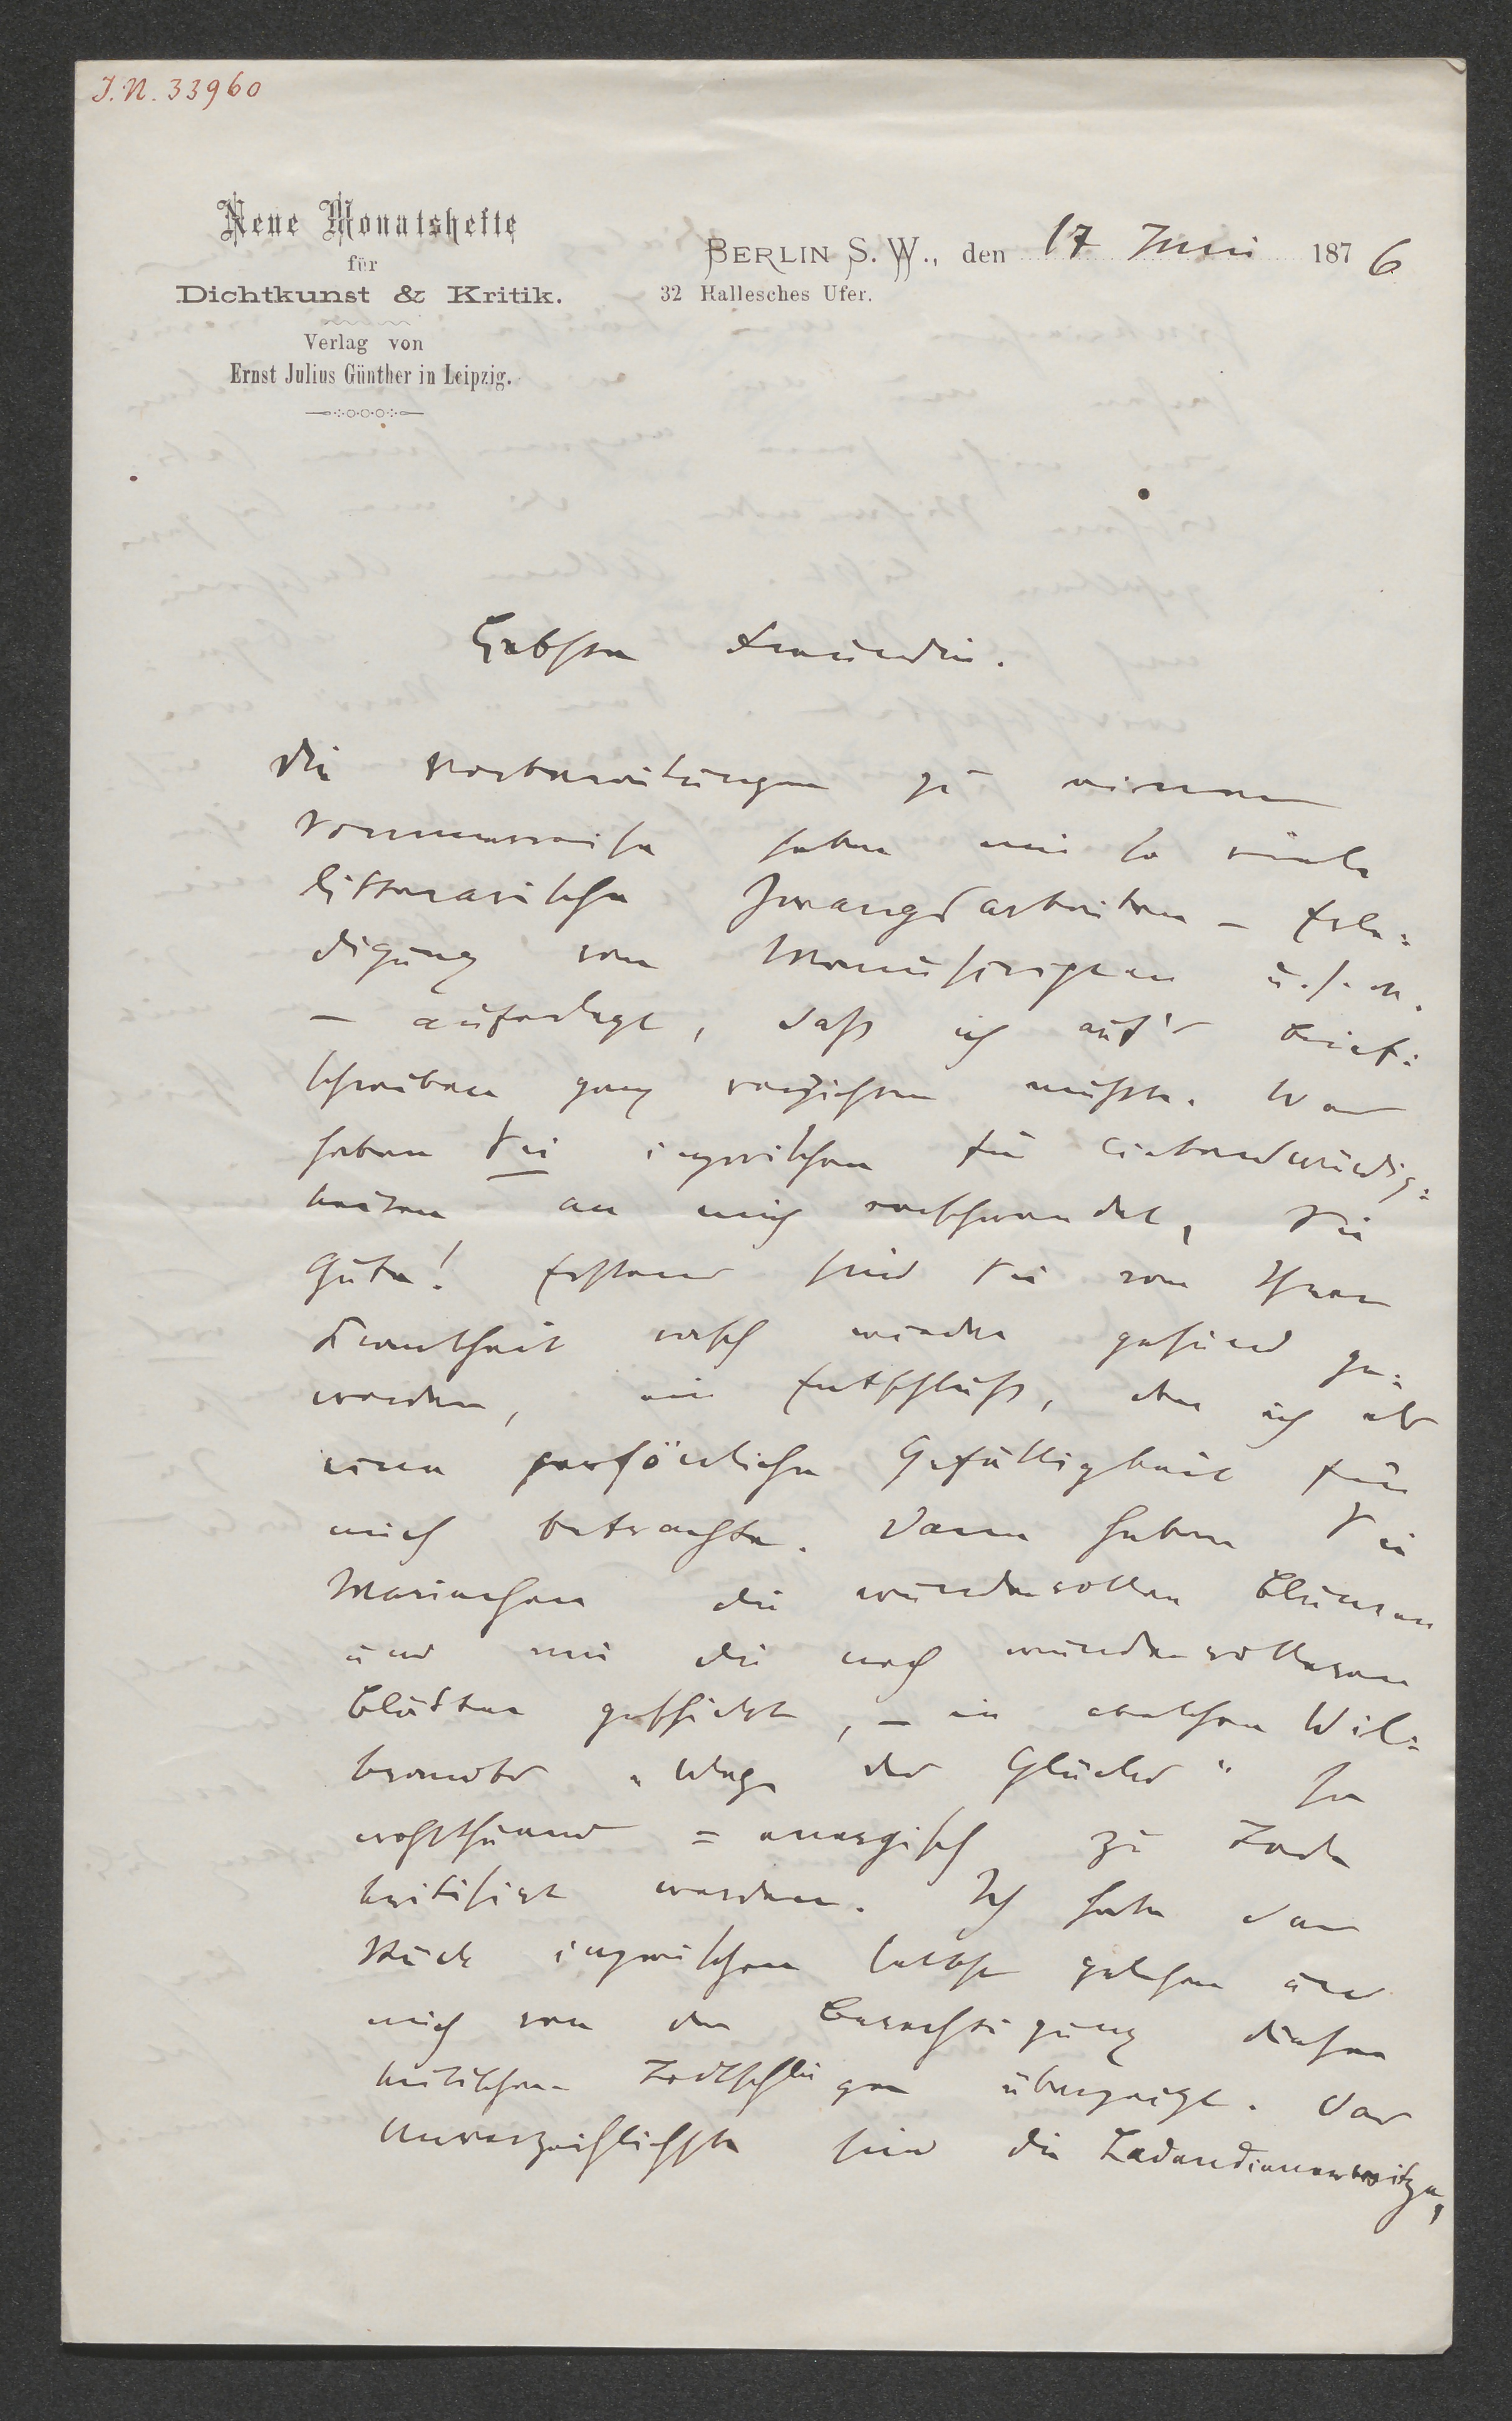 J.N. 33960
Neue Monatshefte
für
Dichtkunst & Kritik.
Verlag von
Ernst Julius Günther in Leipzig.
BERLIN S. W., den 17 Juni 1876
32 Hallesches Ufer.
Liebste Freundin.
Die Vorbereitungen zu einer
Sommerreise haben mir so viele
litterarische Zwangsarbeiten – Erle=
digung von Manuscripten u.s.w.
– auferlegt, daß ich auf's Brief=
schreiben ganz verzichten mußte. Was
haben Sie inzwischen für Liebenswürdig=
keiten an mich verschwendet, Sie
Gute! Erstens sind Sie von Ihrer
Krankheit rasch wieder gesund ge=
worden, ein Entschluß, den ich als
eine persönliche Gefälligkeit für
mich betrachte. Dann haben Sie
Marinchen die wundervollen Blumen
und mir die noch wundervolleren
Blätter geschickt, – in welchen Wil=
brandts „Wege des Glücks" so
wohlthuend = energisch zu Tode
kritisirt werden. Ich habe das
Stück inzwischen selbst gelesen und
mich von der Berechtigung dieses
kritischen Todtschlages überzeugt. Das
Unverzeihlichste sind die Ladendienerwitze,